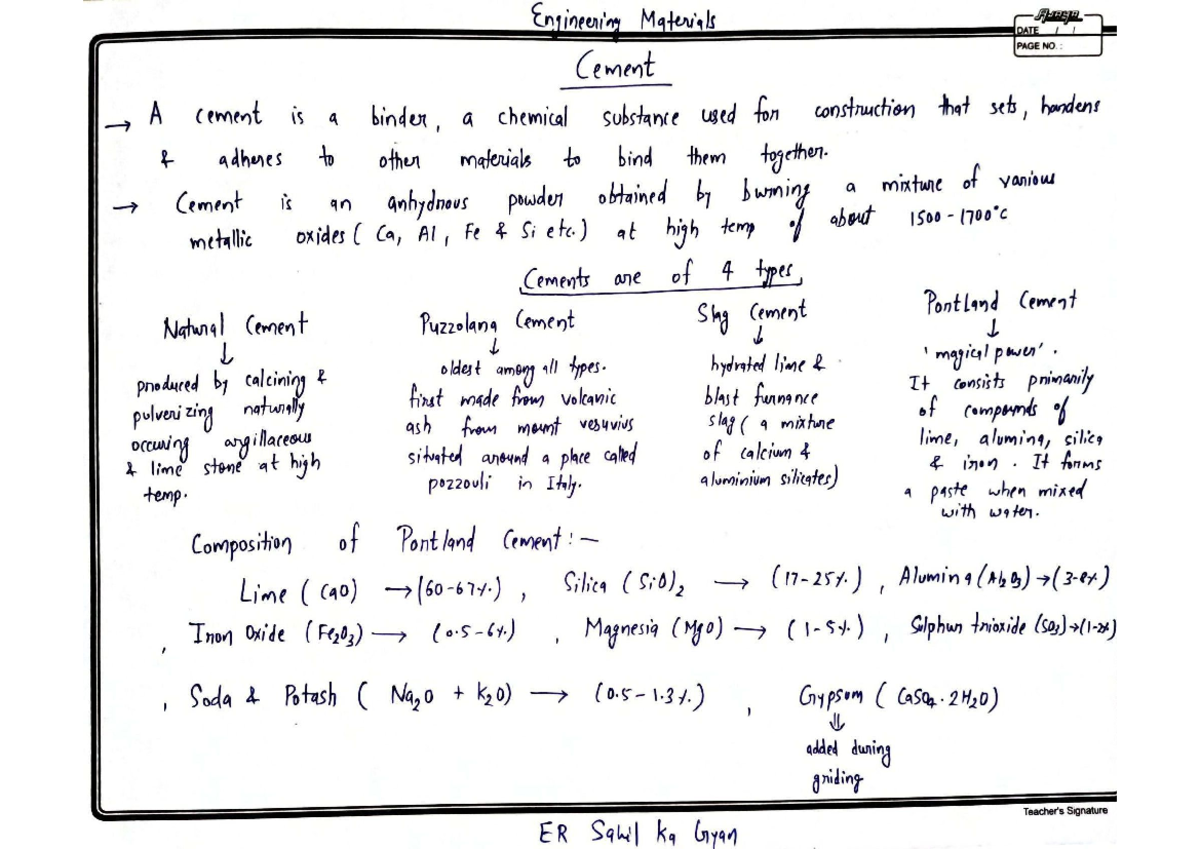 Engineering Materials
DATE / /
PAGE NO. :
Cement
→ A cement is a binder, a chemical substance used for construction that sets, hardens
& adheres to other materials to bind them together.
→ Cement is an anhydrous powder obtained by burning a mixture of various
metallic oxides ( Ca, Al, Fe & Si etc.) at high temp of about 1500-1700°C
Cements are of 4 types
Natural Cement
↓
produced by calcining &
pulverizing naturally
occuring argillaceous
& lime stone at high
temp.
Puzzolana Cement
↓
oldest among all types.
first made from volcanic
ash from mount vesuvius
situated around a place called
pozzouli in Italy.
Slag Cement
↓
hydrated lime &
blast furnance
slag ( a mixture
of calcium &
aluminium silicates)
Portland Cement
↓
'magical power'.
It consists primarily
of compounds of
lime, alumina, silica
& iron. It forms
a paste when mixed
with water.
Composition of Portland Cement :-
Lime ( CaO) → (60-67%.) , Silica ( SiO)₂ → (17-25%.) , Alumina (Al₂O₃) → (3-8%)
, Iron Oxide (Fe₂O₃) → (0.5-6%) , Magnesia (MgO) → (1-5%.) , Sulphur trioxide (SO₃) → (1-2%)
, Soda & Potash ( Na₂O + K₂O) → (0.5-1.3%.) , Gypsum ( CaSO₄.2H₂O)
⇓
added during
griding
Teacher's Signature
ER Sahil Ka Gyan